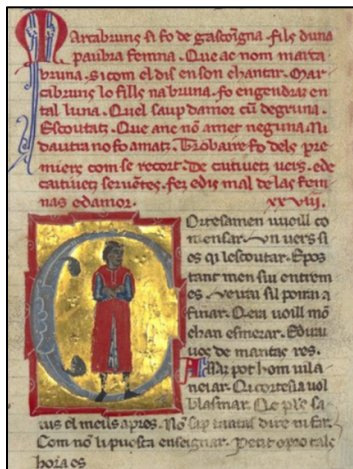 Marcabruns si fo de gascoingna fils duna
paubra femna. Que ac nom marca
bruna. si com el dis en son chantar. Mar
cabruns lo fills na bruna. fo engendraz en
tal luna. Quel saup damor cū degruna.
Escoutatz. Que anc nō amet neguna. Ni
dautra no fo amatz. Trobaire fo dels pre
miers com se recort. De caitivetz vers. e de
caitivetz serventes. fez e dis mal de las fem
nas e damor. xxviiii.
Cortesamen vuoill co
mensar. un vers si
es qi lescoutar. E pos
tant men sui entrem
es. veirai sil poirai a
finar. Qera vuoill mō
chan esmerar. E dirai
vos de mantas res.
Assatz pot hom vila
neiar. Qui cortesia vol
blasmar. Qe.l ples sa
vis el meils apres. No sap tantas dire ni far.
Com no li puosca enseignar. Petit o pro tals
hora es